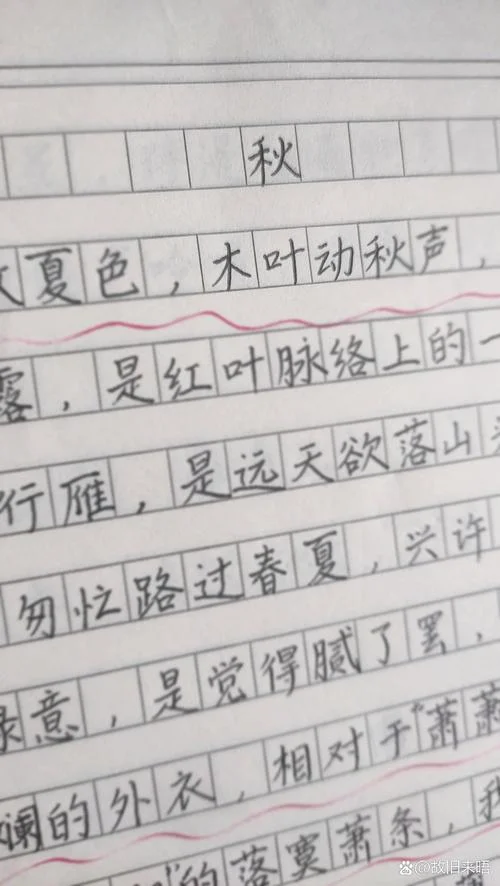 秋
夏色，木叶动秋声，
露，是红叶脉络上的一
行雁，是远天欲落山
匆忙路过春夏，兴许
绿意，是觉得腻了罢，
斓的外衣，相对于“萧
的落寞萧条，我
@故旧来晤